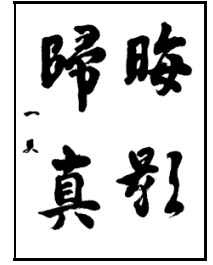 晦影
歸真